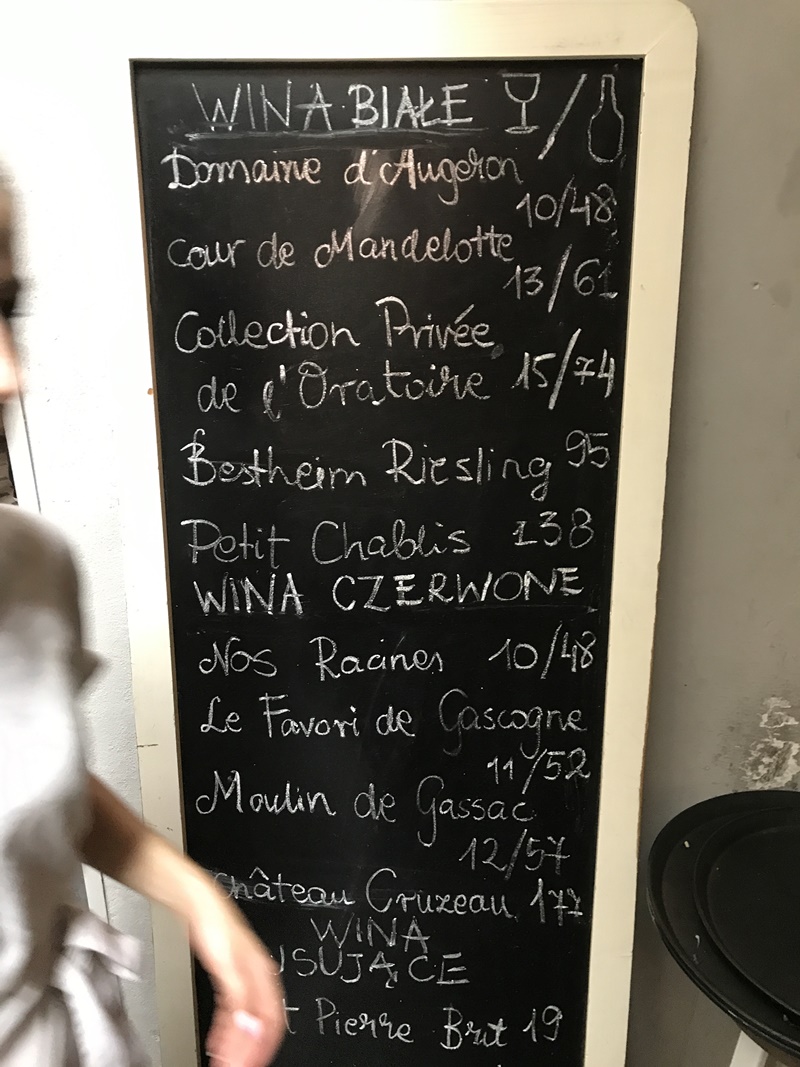 WINA BIAŁE /
Domaine d'Augeron
10/48
Cour de Mandelotte
13/61
Collection Privée
de l'Oratoire 15/74
Bestheim Riesling 95
Petit Chablis 138
WINA CZERWONE
Nos Racines 10/48
Le Favori de Gascogne
11/52
Moulin de Gassac
12/57
Château Cruzeau 177
WINA
USUJĄCE
t Pierre Brut 19